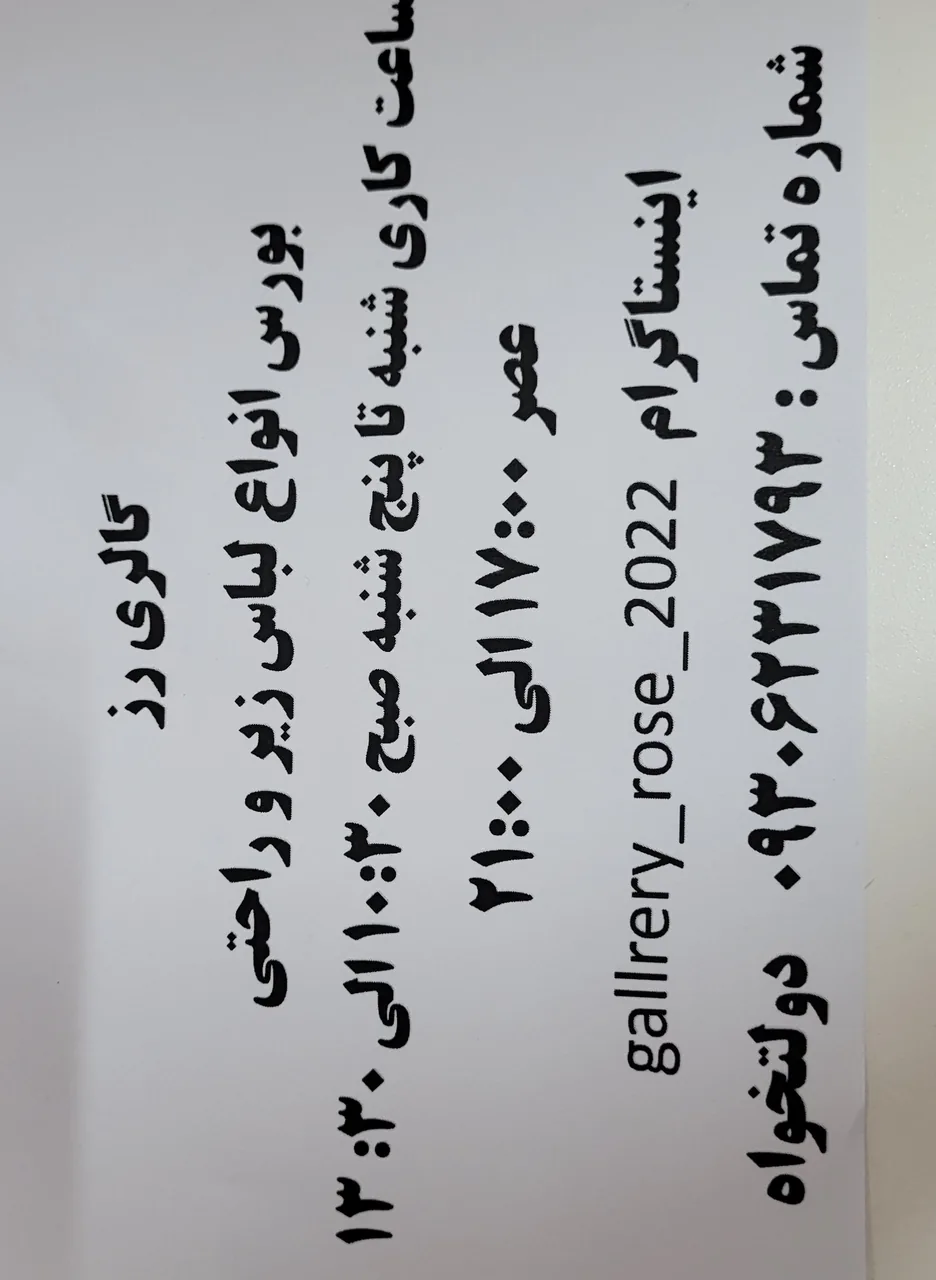 گالری رز
بورس انواع لباس زیر و راحتی
ساعت کاری شنبه تا پنج شنبه صبح ۱۰:۳۰ الی ۱۳:۳۰
عصر ۱۷:۰۰ الی ۲۱:۰۰
اینستاگرام gallrery_rose_2022
شماره تماس : ۰۹۳۰۶۲۳۱۷۹۳ دولتخواه